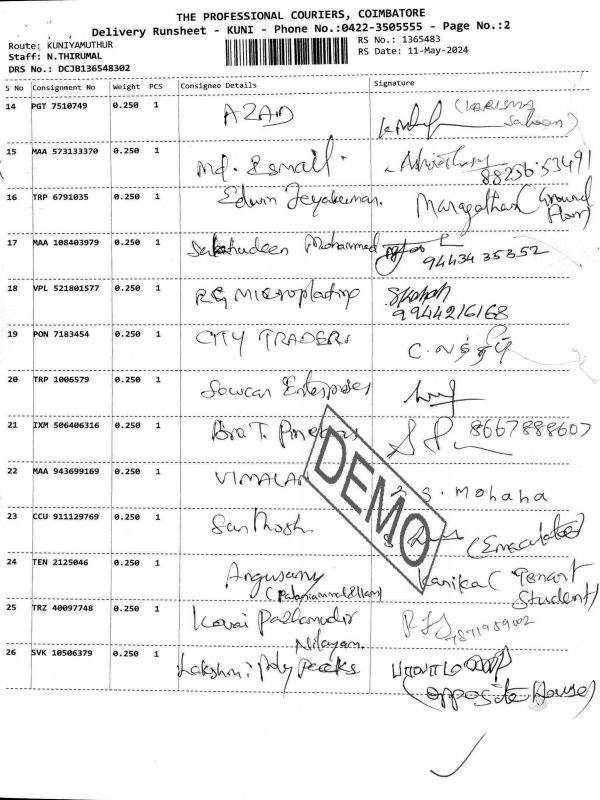 THE PROFESSIONAL COURIERS, COIMBATORE
Delivery Runsheet - KUNI - Phone No.:0422-3505555 - Page No.:2
Route: KUNIYAMUTHUR RS No.: 1365483
Staff: N.THIRUMAL RS Date: 11-May-2024
DRS No.: DCJB136548302
S No Consignment No Weight PCS Consignee Details Signature
14 PGT 7510749 0.250 1 AZAD
15 MAA 573133370 0.250 1 Md. Esmail. 8825653491
16 TRP 6791035 0.250 1 Edwin Jeyakumar. Maragatham (Ground
Floor)
17 MAA 108403979 0.250 1 Mohammed
9443435352
18 VPL 521801577 0.250 1 RG Microplating
9944216168
19 PON 7183454 0.250 1 CITY TRADERS
20 TRP 1006579 0.250 1 Enterprises
21 IXM 506406316 0.250 1 8667888607
22 MAA 943699169 0.250 1 VIMALAN S. Mohana
23 CCU 911129769 0.250 1 Santhosh
24 TEN 2125046 0.250 1 Angusamy Kanika (Tenant
Student)
25 TRZ 40097748 0.250 1 Kovai Pazhamudir
Nilayam.
26 SVK 10506379 0.250 1 Lakshmi Poly Packs
(opposite House)
DEMO